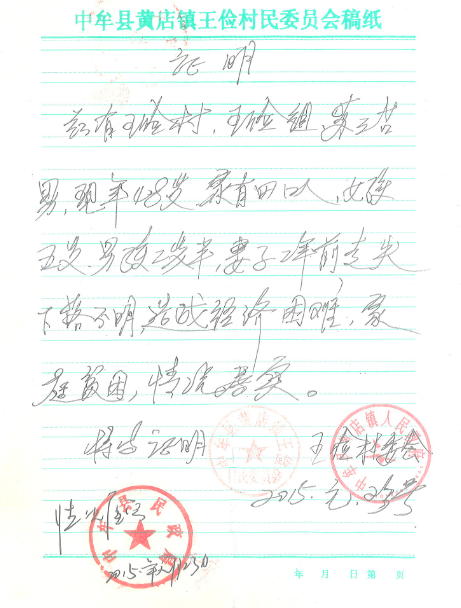 中牟县黄店镇王俭村民委员会稿纸
证明
兹有王俭村,王俭组,
男,现年48岁 家有四口人,女孩
五岁,男孩2岁半,妻子2年前走失
下落不明,造成经济困难,家
庭贫困,情况属实。
特此证明
王俭村委会
2015.元.
情况属实
中牟县民政局
年 月 日 第 页